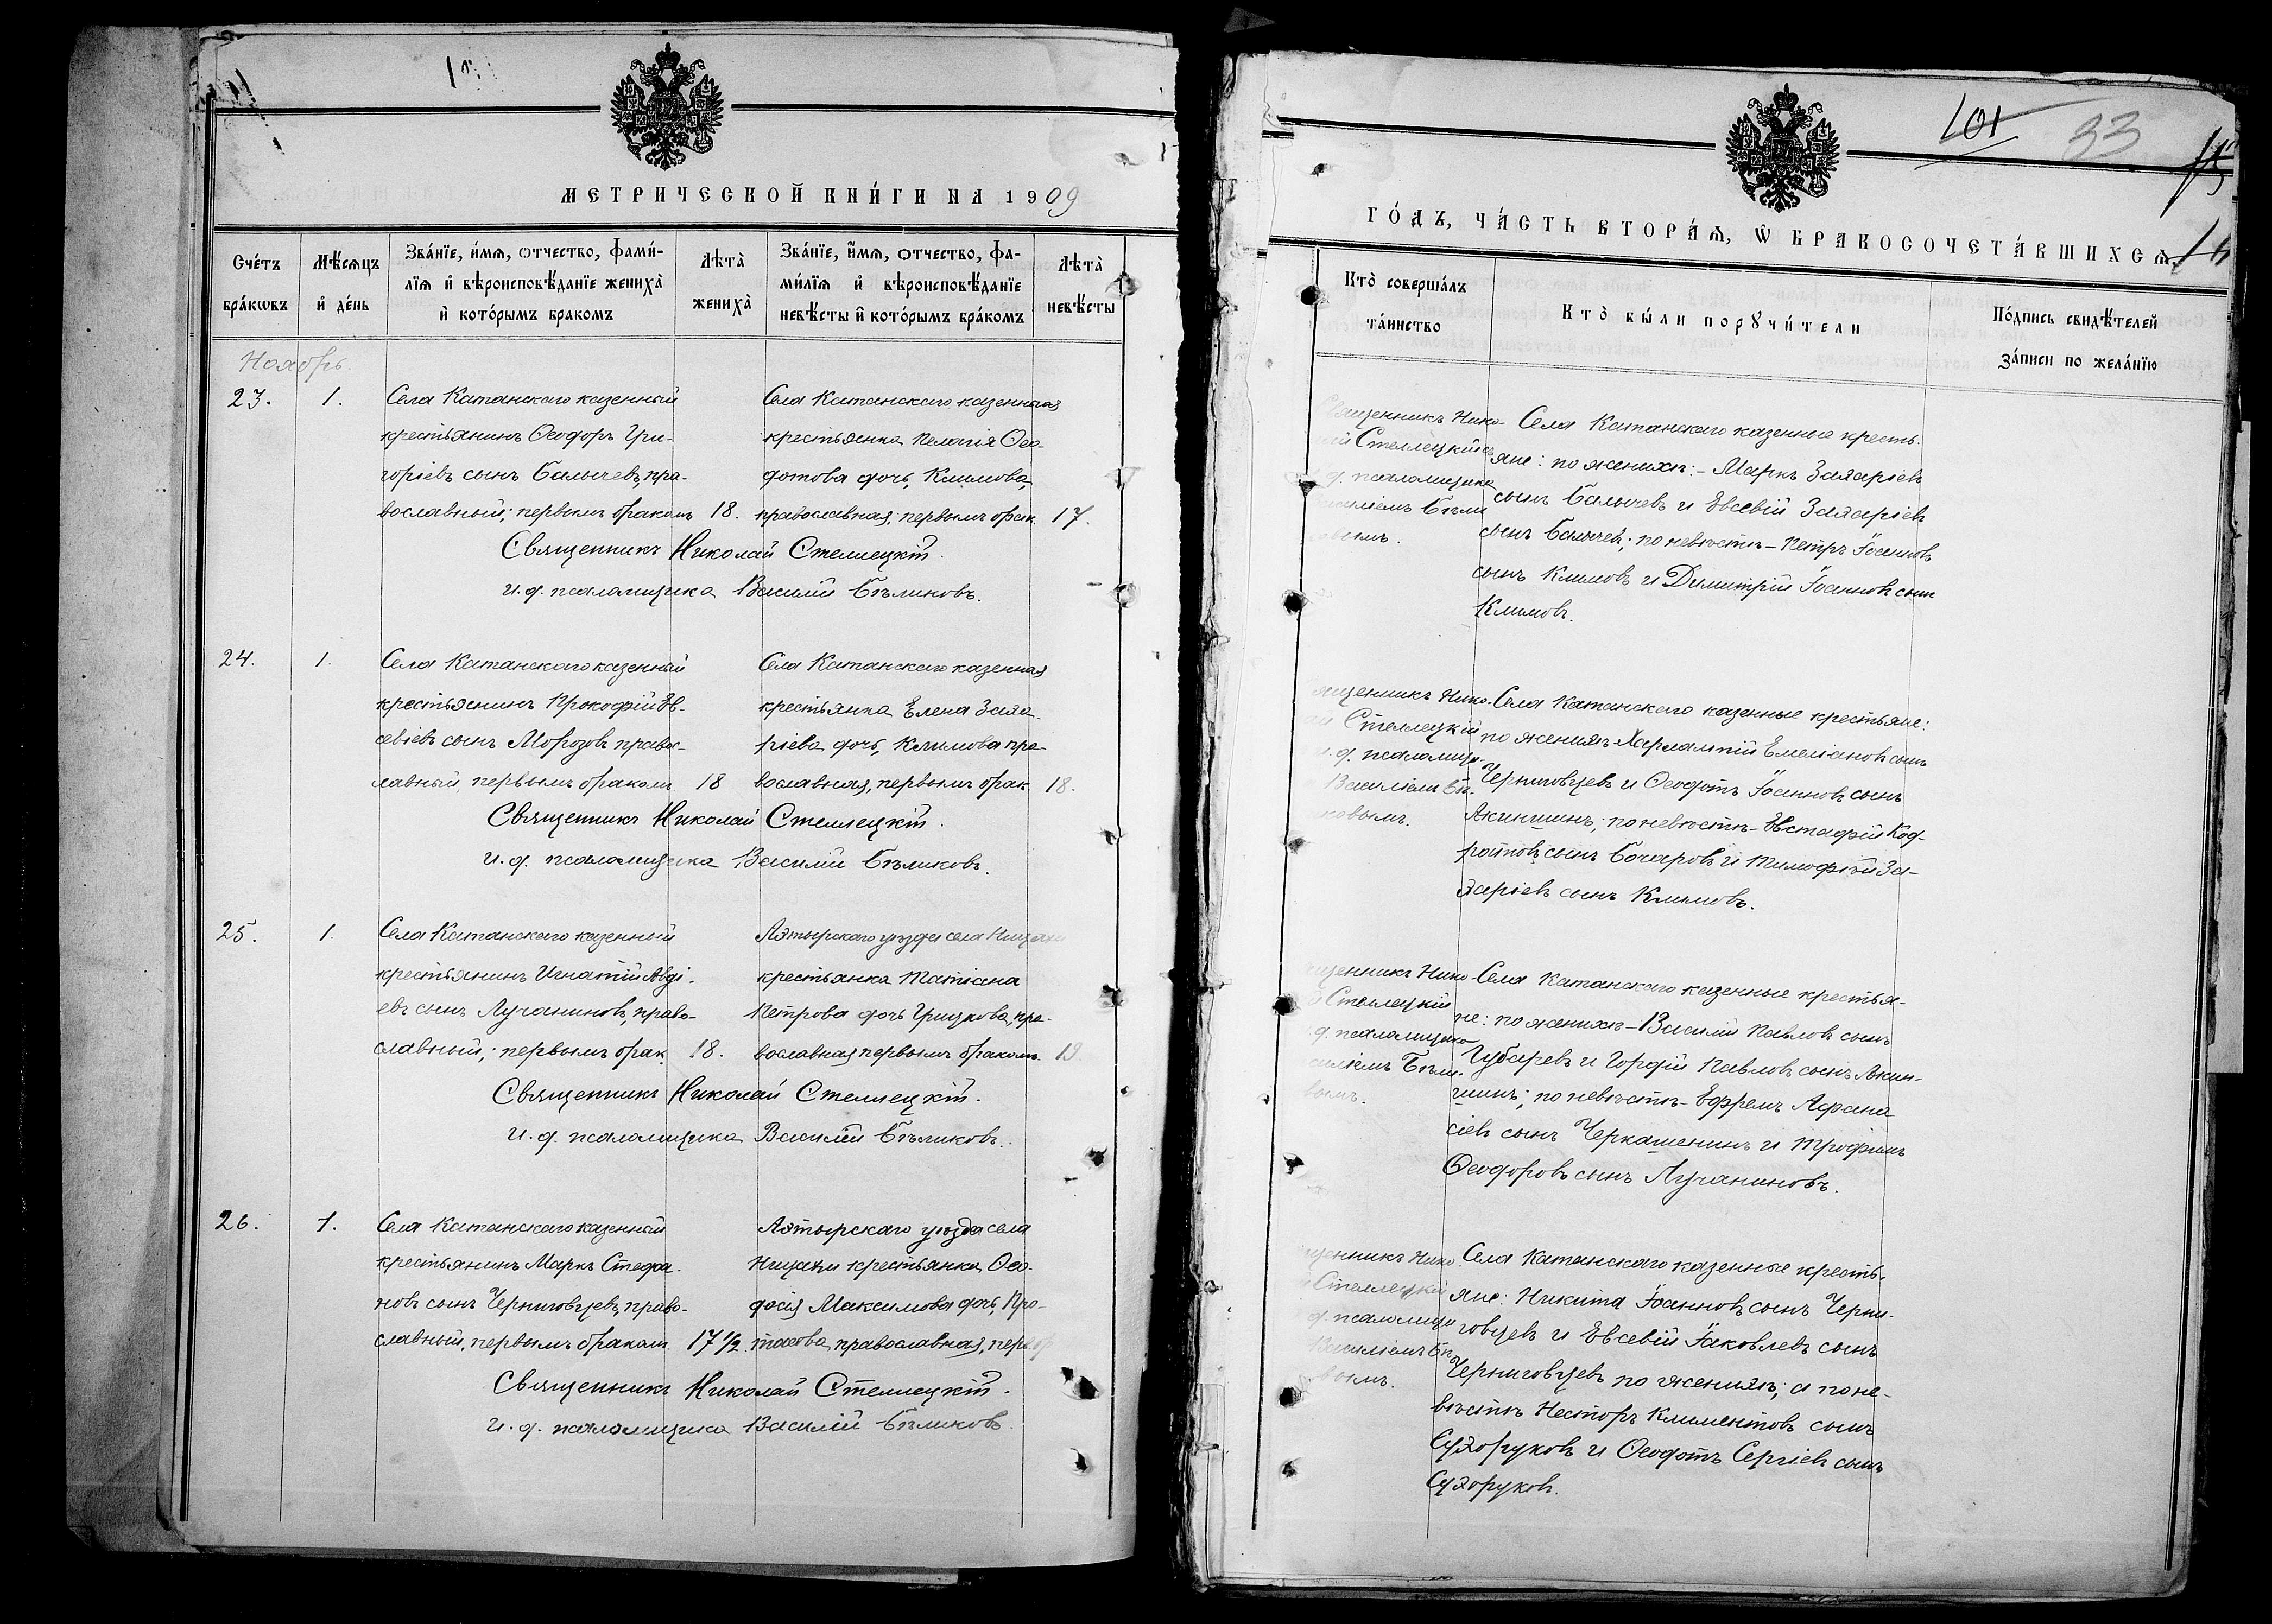 МЕТРИЧЕСКОЙ КНИ́ГИ НА 1909
Сче́тъ бра́кѡвъ
Мѣ́сяцъ и де́нь
Зва́нїе, и́мя, ѻтчество, фами́-
лїя и҆ вѣроисповѣ́данїе жениха̀
и҆ кото́рымъ бракомъ
Лѣта̀ жениха̀
Зва́нїе, и҆́мя, ѻтчество, фа-
ми́лїя и҆ вѣроисповѣ́данїе
невѣ́сты и҆ кото́рымъ бра́комъ
Лѣта̀ невѣ́сты
Ноябрь.
23.
1.
Села Катанскаго казенный
крестьянинъ Ѳеодоръ Гри-
горіевъ сынъ Балычевъ, пра-
вославный; первымъ бракомъ
18.
Села Катанскаго казенная
крестьянка Пелагія Ѳео-
дотова дочь, Климова,
православная; первымъ брак.
17.
Священникъ Николай Стеллецкій.
и. д. псаломщика Василій Бѣликовъ.
24.
1.
Села Катанскаго казенный
крестьянинъ Прокофій Ев-
севіевъ сынъ Морозовъ правос-
лавный, первымъ бракомъ
18
Села Катанскаго казенная
крестьянка Елена Заха-
ріева дочь, Климова пра-
вославная, первымъ брак.
18.
Священникъ Николай Стеллецкій.
и. д. псаломщика Василій Бѣликовъ.
25.
1.
Села Катанскаго казенный
крестьянинъ Игнатій Авді-
евъ сынъ Лучаниновъ, право-
славный; первымъ брак.
18.
Ахтырскаго уѣзда села
крестьянка Татіана
Петрова дочь Грицкова, пра-
вославная первымъ бракомъ.
19.
Священникъ Николай Стеллецкій.
и. д. псаломщика Василій Бѣликовъ.
26.
1.
Села Катанскаго казенный
крестьянинъ Маркъ Стефа-
новъ сынъ Черниговцевъ, право-
славный, первымъ бракомъ
17 1/2.
Ахтырскаго уѣзда села
Ницахи крестьянка Ѳео-
досія Максимова дочь, Про-
тасова, православная, перв. бр
Священникъ Николай Стеллецкій.
и. д. псаломщика Василій Бѣликовъ.
101
33
ГО́ДЪ, ЧА́СТЬ ВТОРА́Я, Ѡ БРАКОСОЧЕТА́ВШИХСЯ.
Кто̀ соверша́лъ
та́инство
Кто̀ бы́ли порꙋчи́тели
По́дпись свидѣ́телей
за́писи по жела́нїю
Священникъ Нико-
лай Стеллецкій съ
и. д. псаломщика
Василіемъ Бѣли
ковымъ.
Села Катанскаго казенные кресть-
яне: по женихѣ: - Маркъ Захаріевъ
сынъ Балычевъ и Евсевій Захаріевъ
сынъ Балычевъ; по невѣстѣ - Петръ Іоанновъ
сынъ Климовъ и Димитрій Іоанновъ сынъ
Климовъ.
ященникъ Нико-
ай Стеллецкій
и. д. псаломщи-
Василіемъ Бѣ-
ковымъ.
Села Катанскаго казенные крестьяне:
по женихѣ Харлампій Емеліановъ сынъ
Черниговцевъ и Ѳеодотъ Іоанновъ сынъ
Акиншинъ; по невѣстѣ - Евстафій Код-
ратовъ сынъ Бочаровъ и Тимофѣй За-
харіевъ сынъ Климовъ.
щенникъ Нико
Стеллецкій
д. псаломщика
силіемъ Бѣли-
вымъ.
Села Катанскаго казенные крестья-
не: по женихѣ - Василій Павловъ сынъ
Губаревъ и Гордій Павловъ сынъ Акин-
шинъ; по невѣстѣ - Ефремъ Афана
сіевъ сынъ Черкашенинъ и Трофимъ
Ѳеодоровъ сынъ Лучаниновъ.
щенникъ Нико
Стеллецкій
д. псаломщи
Василіемъ Бѣ
вымъ.
Села Катанскаго казенные кресть-
яне: Никита Іоанновъ сынъ Черни-
говцевъ и Евсевій Іаковлевъ сынъ
Черниговцевъ по женихѣ; а по не-
вѣстѣ Несторъ Климентовъ сынъ
Сухоруковъ и Ѳеодотъ Сергіевъ сынъ
Сухоруковъ.